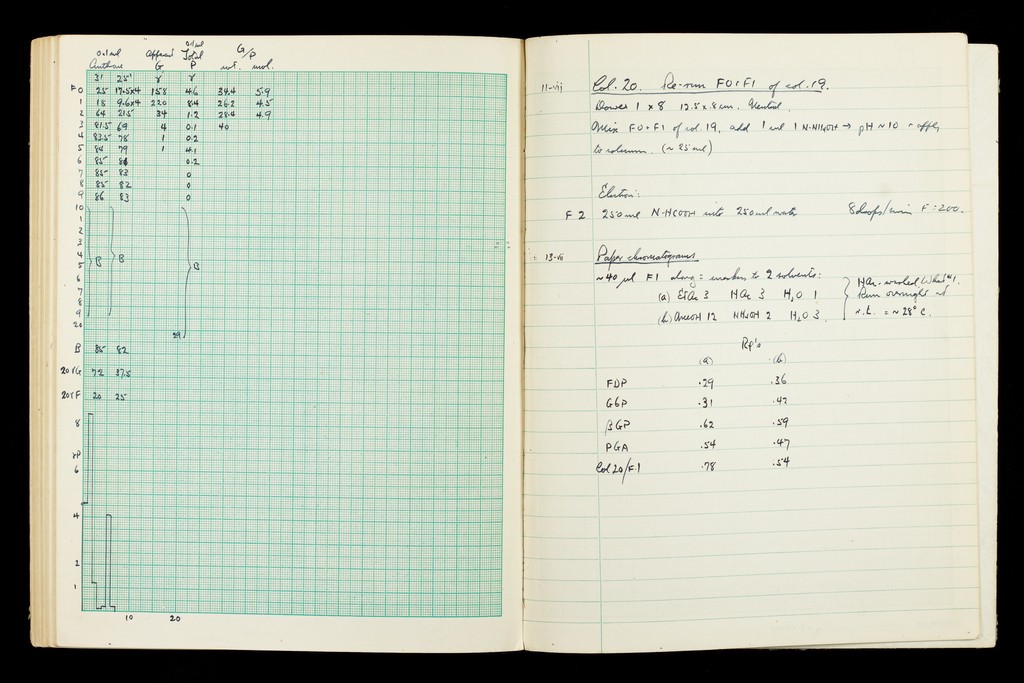 0.1 ml 0.1 ml G/P
Anthrone Apparent Total wt. mol.
G P
31 25' γ γ
F0 25 17.5x4 158 4.6 34.4 5.9
1 18 9.6x4 220 8.4 26.2 4.5
2 64 21.5 34 1.2 28.4 4.9
3 81.5 69 4 0.1 40
4 83.5 78 1 0.2
5 84 79 1 4.1
6 85 0.2
7 85 83 0
8 85 82 0
9 86 83 0
10
1
2
3
4
5 B B B
6
7
8
9
20
29
B 85 82
20γG 72 37.5
20γF 20 25
8
γP
6
4
2
1
10 20
11-vii Col. 20. Re-run F0+F1 of col. 19.
Dowex 1 x 8 12.5 x .8 cm. Neutral.
Mix F0+F1 of col. 19, add 1 ml 1 N-NH4OH → pH ~10 apply
to column. (~25 ml)
Elution:
F2 250 ml N-HCOOH into 250 ml water 8 drops/min F = 200.
13-vii Paper chromatograms
~40 μl F1 along = markers to 2 solvents:
(a) EtAc 3 HAc 3 H2O 1
(b) 12 NH4OH 2 H2O 3.
HAc-washed What # 1.
Run overnight at
r.t. = ~28° C.
RF's
(a) (b)
FDP .29 .36
G6P .31 .42
βGP .62 .59
PGA .54 .47
Col 20/F.1 .78 .54